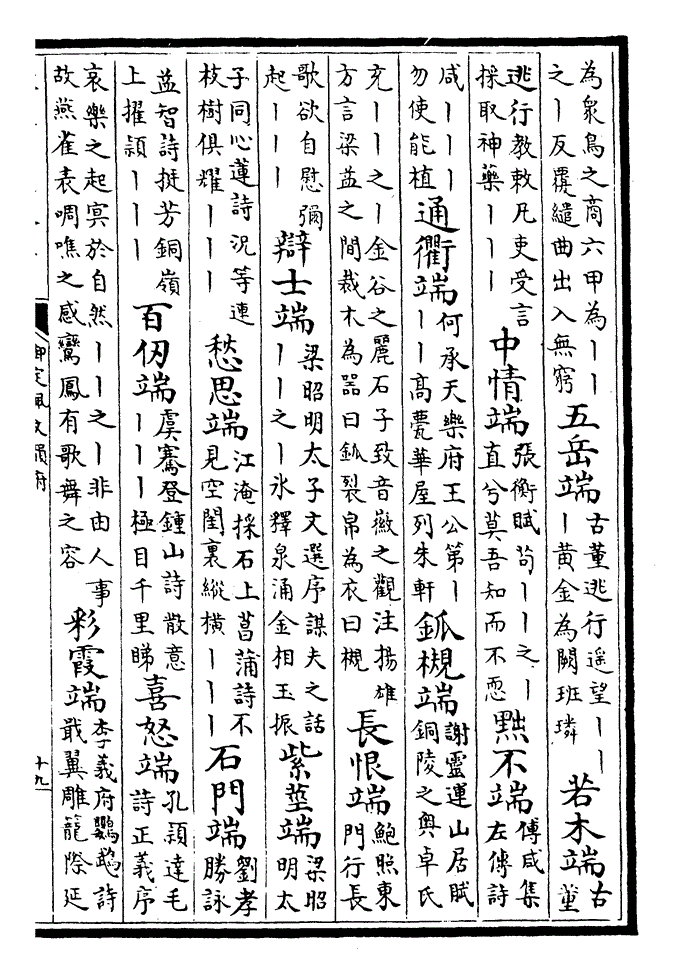 為衆鳥之商六甲為丨丨之丨反覆纒曲出入無窮 五岳端 古董逃行遥望丨丨丨黄金為闕班璘 若木端 古董
逃行教敕凡吏受言採取神藥丨丨丨 中情端 張衡賦苟丨丨之丨直兮莫吾知而不恧 黙不端 傅咸集左傳詩
咸丨丨丨勿使能植 通衢端 何承天樂府王公第丨丨丨高甍華屋列朱軒 釽槻端 謝靈運山居賦銅陵之奥卓氏
充丨丨之丨金谷之麗石子致音徽之觀注揚雄方言梁益之間裁木為器曰釽裂帛為衣曰槻 長恨端 鮑照東門行長
歌欲自慰彌起丨丨丨 辯士端 梁昭明太子文選序謀夫之話丨丨之丨氷釋泉涌金相玉振 紫莖端 梁昭明太
子同心蓮詩況等連枝樹俱耀丨丨丨 愁思端 江淹採石上菖蒲詩不見空閨裏縱横丨丨丨 石門端 劉孝勝詠
益智詩挺芳銅嶺上擢頴丨丨丨 百仞端 虞騫登鍾山詩散意丨丨丨極目千里睇 喜怒端 孔頴達毛詩正義序
哀樂之起㝠於自然丨丨之丨非由人事故燕雀表啁噍之感鸞鳳有歌舞之容 彩霞端 李義府鸚鵡詩戢翼雕籠際延
御定佩文韻府
十九